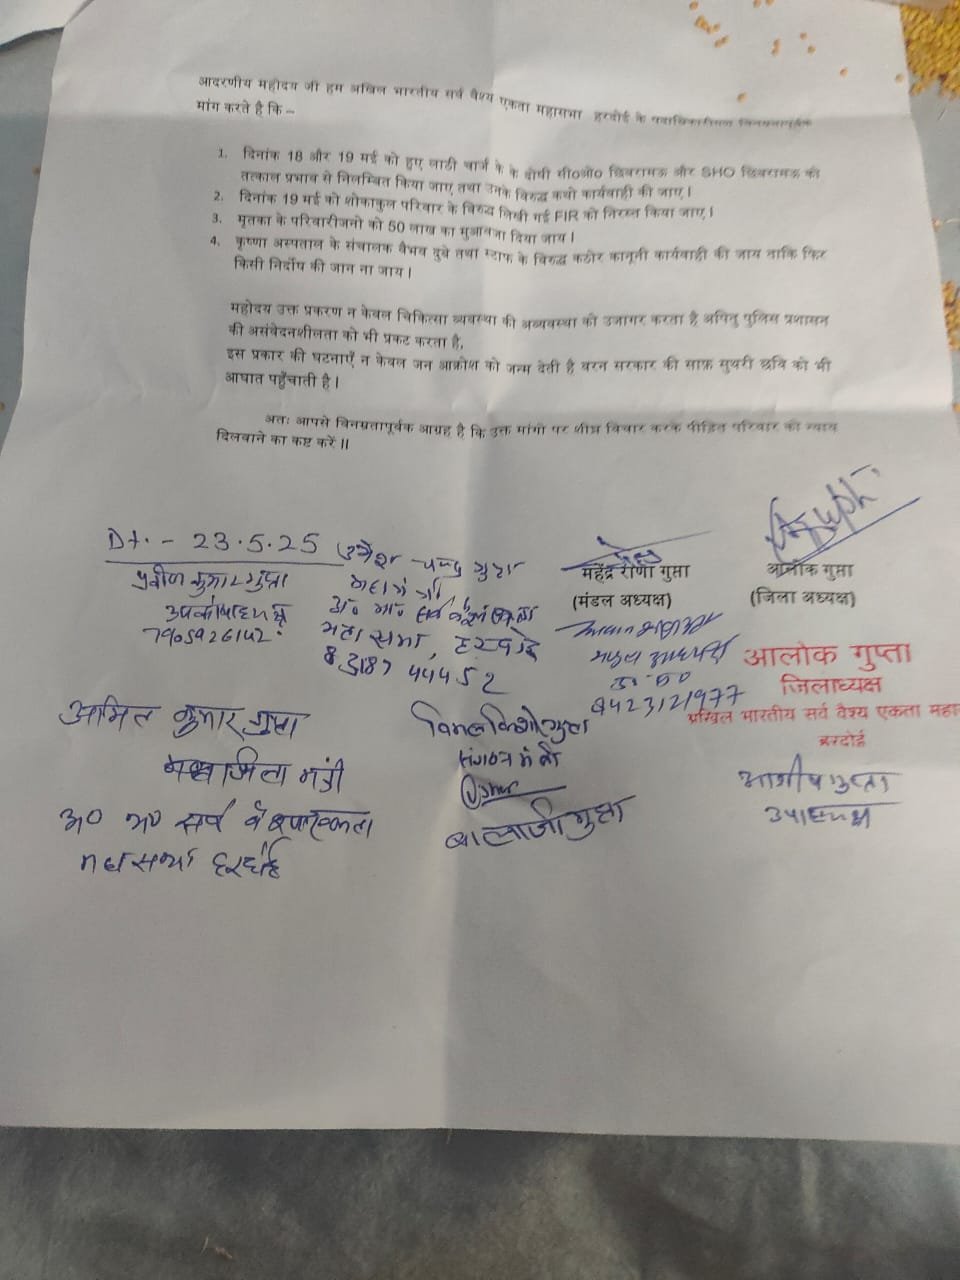 आदरणीय महोदय जी हम अखिल भारतीय सर्व वैश्य एकता महासभा हरदोई के पदाधिकारीगण विनम्रतापूर्वक
मांग करते है कि –
1. दिनांक 18 और 19 मई को हुए लाठी चार्ज के के दोषी सी०ओ० छिबरामऊ और SHO छिबरामऊ को
तत्काल प्रभाव से निलम्बित किया जाए तथा उनके विरुद्ध कार्यवाही की जाए।
2. दिनांक 19 मई को शोकाकुल परिवार के विरुद्ध लिखी गई FIR को निरस्त किया जाए।
3. मृतका के परिवारीजनो को 50 लाख का मुआवजा दिया जाय।
4. कृष्णा अस्पताल के संचालक वैभव दुबे तथा स्टाफ के विरुद्ध कठोर कानूनी कार्यवाही की जाय ताकि फिर
किसी निर्दोष की जान ना जाय।
महोदय उक्त प्रकरण न केवल चिकित्सा व्यवस्था की अव्यवस्था को उजागर करता है अपितु पुलिस प्रशासन
की असंवेदनशीलता को भी प्रकट करता है,
इस प्रकार की घटनाएँ न केवल जन आक्रोश को जन्म देती है वरन सरकार की साफ़ सुथरी छवि को भी
आघात पहुँचाती है।
अतः आपसे विनम्रतापूर्वक आग्रह है कि उक्त मांगो पर शीघ्र विचार करके पीड़ित परिवार को न्याय
दिलवाने का कष्ट करें॥
Dt. - 23.5.25
उमेश चन्द्र गुप्ता
महेंद्र राणा गुप्ता
आलोक गुप्ता
प्रवीण कुमार गुप्ता
महामंत्री
(मंडल अध्यक्ष)
(जिला अध्यक्ष)
7905926142
महासभा, हरदोई
8318744452
9423121977
आलोक गुप्ता
जिलाध्यक्ष
अखिल भारतीय सर्व वैश्य एकता महा
हरदोई
अमित कुमार गुप्ता
विमल किशोर गुप्ता
जिला मंत्री
संगठन मंत्री
अ० भा० सर्व वैश्य एकता
महासभा हरदोई
बालाजी गुप्ता
उपाध्यक्ष